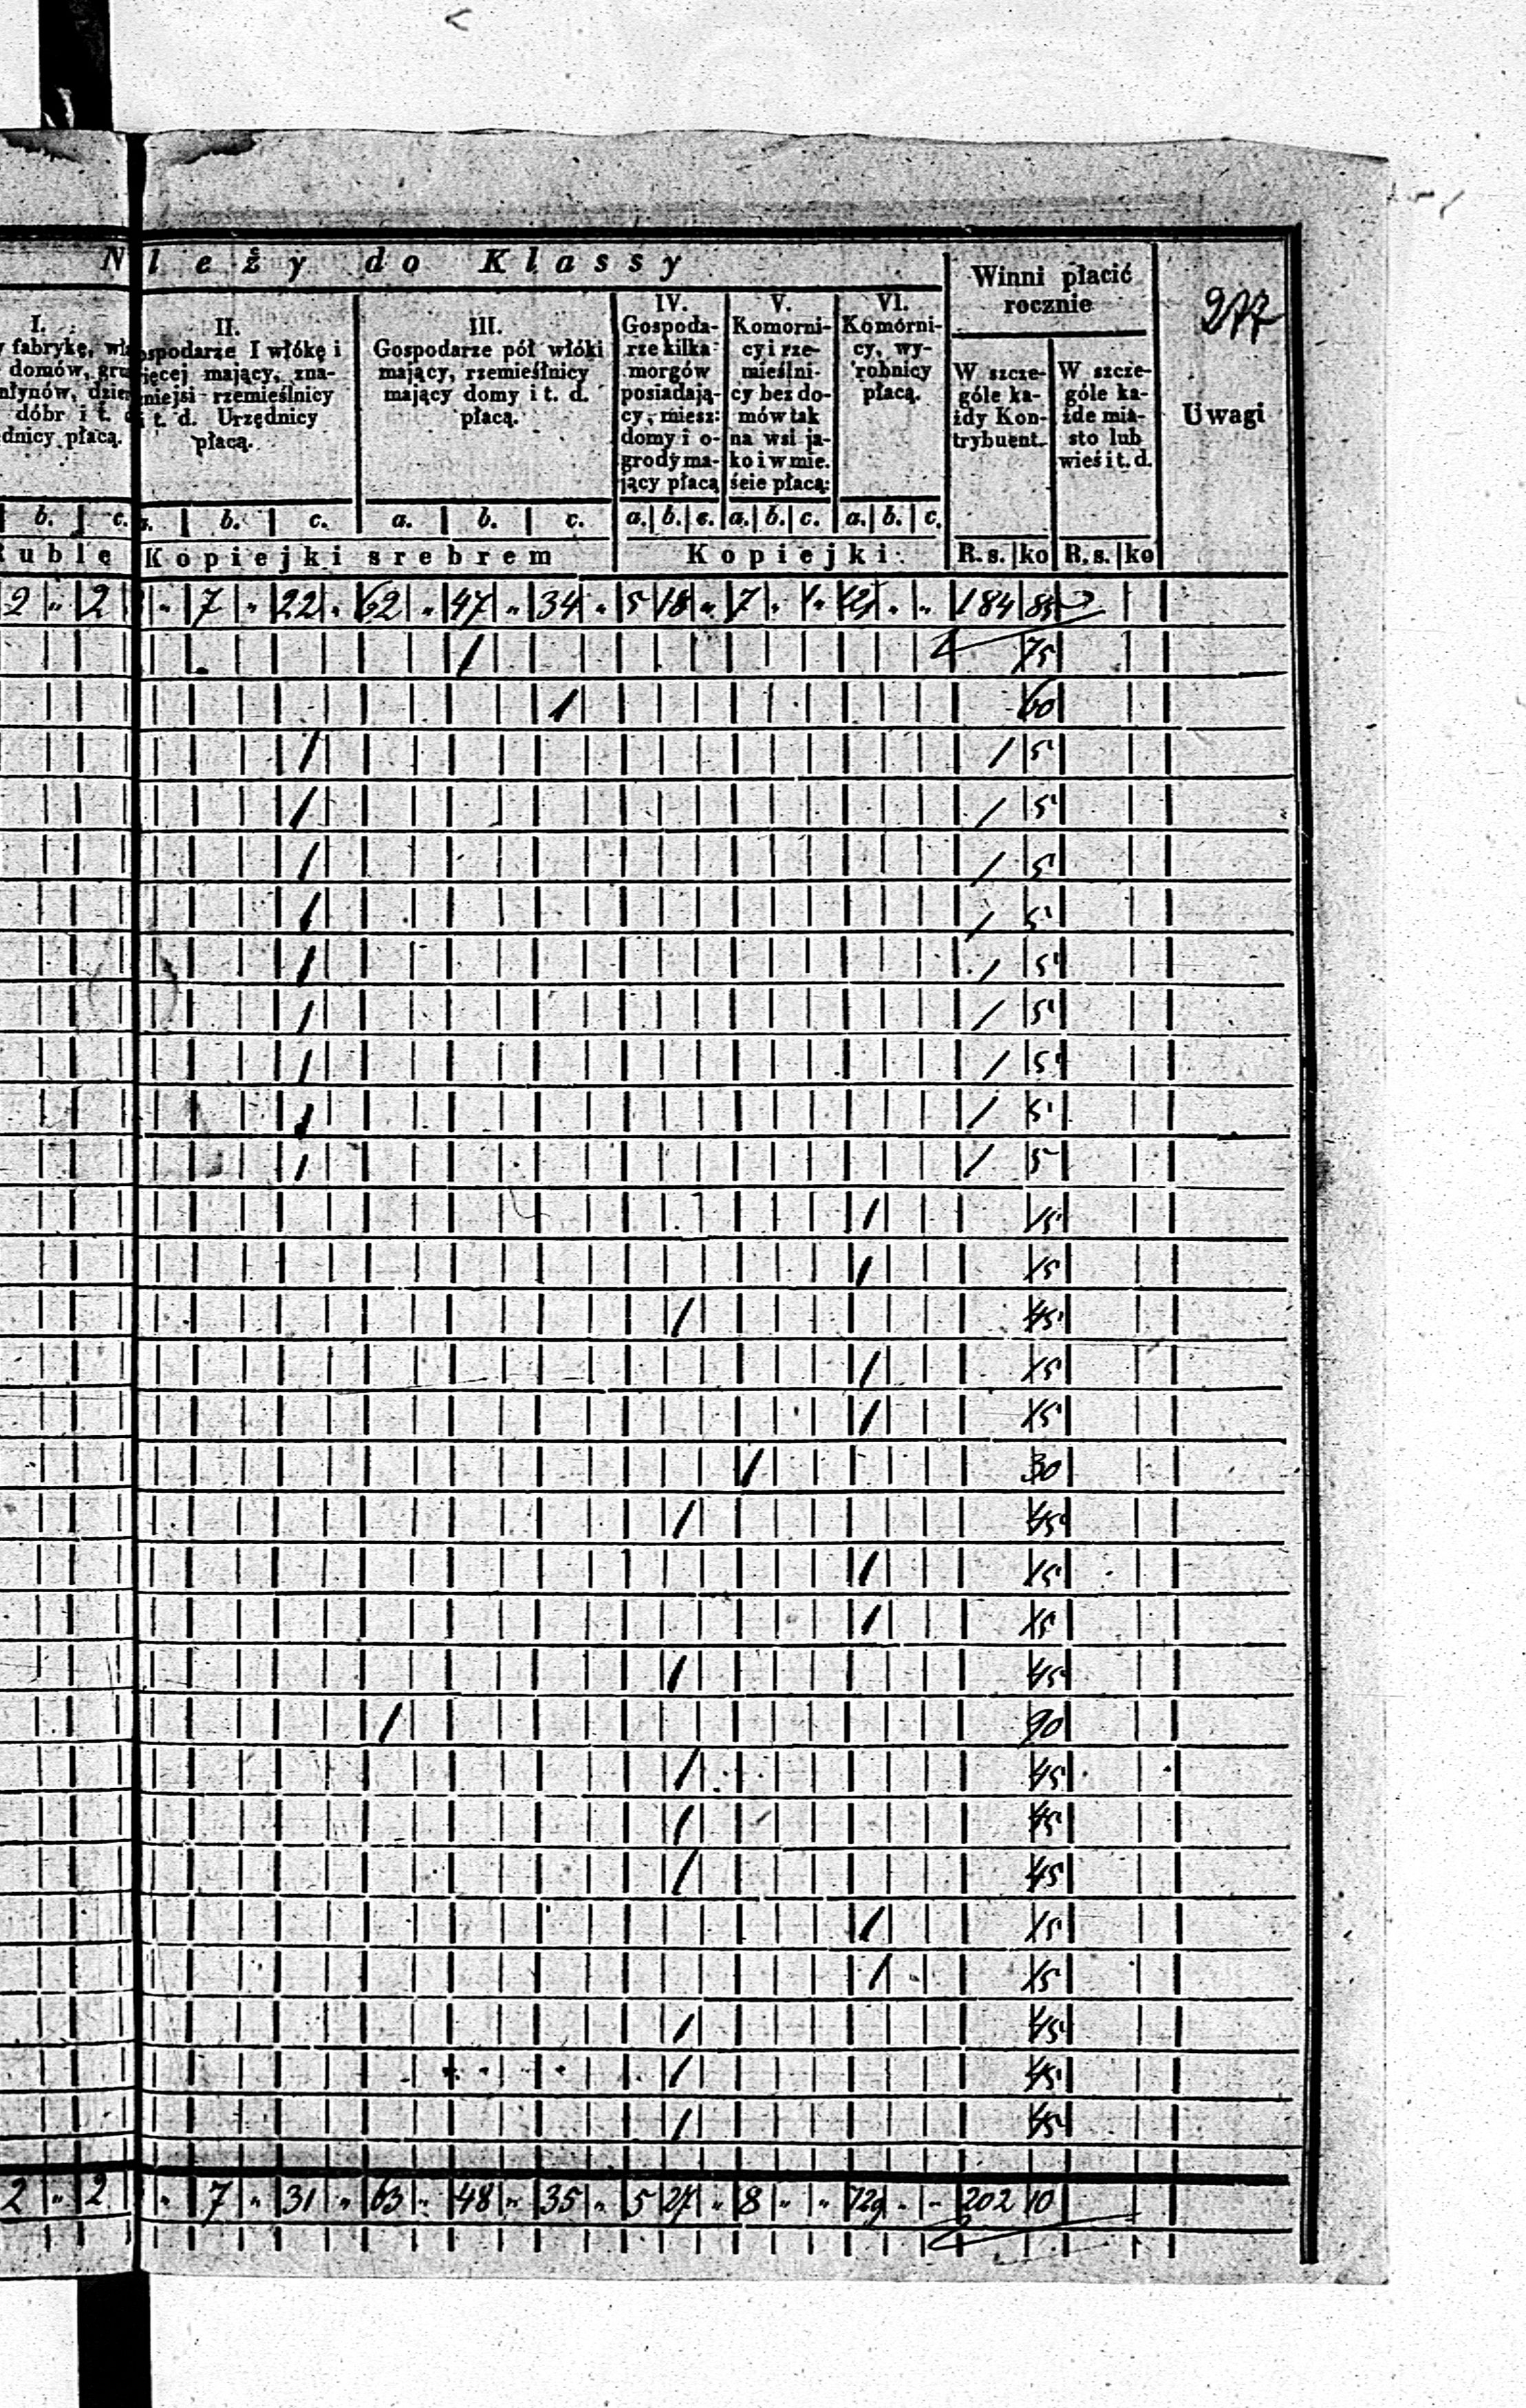 N leży do Klassy
Winni płacić
rocznie
Uwagi
277
I.
fabrykę,
domów, gru
młynów, dzier
dóbr i t. d
dnicy płacą.
II.
ospodarze I włókę i
ięcej mający, zna-
niejsi rzemieślnicy
i t. d. Urzędnicy
płacą.
III.
Gospodarze pół włóki
mający, rzemieślnicy
mający domy i t. d.
płacą.
IV.
Gospoda-
rze kilka
morgów
posiadają-
cy, miesz:
domy i o-
grody ma-
jący płacą
V.
Komorni-
cy i rze-
mieślni-
cy bez do-
mów tak
na wsi ja-
ko i w mie.
ście płacą:
VI.
Komórni-
cy, wy-
robnicy
płacą.
W szcze-
góle ka-
żdy Kon-
trybuent.
W szcze-
góle ka-
żde mia-
sto lub
wieś i t. d.
b. c. a. b. c. a. b. c. a. b. c. a. b. c. a. b. c.
Ruble Kopiejki srebrem Kopiejki R. s. ko R. s. ko
2 " 2 " 7 " 22 " 62 " 47 " 34 " 5 18 " 7 " " " " 184 85
1 75
1 60
1 1 5
1 1 5
1 1 5
1 1 5
1 1 5
1 1 5
1 1 5
1 1 5
1 1 5
1 15
1 15
1 45
1 15
1 15
1 30
1 45
1 15
1 15
1 45
1 90
1 45
1 45
1 45
1 15
1 15
1 45
1 45
1 45
2 " 2 " 7 " 31 " 63 " 48 " 35 " 5 27 " 8 " " 129 " " 202 10